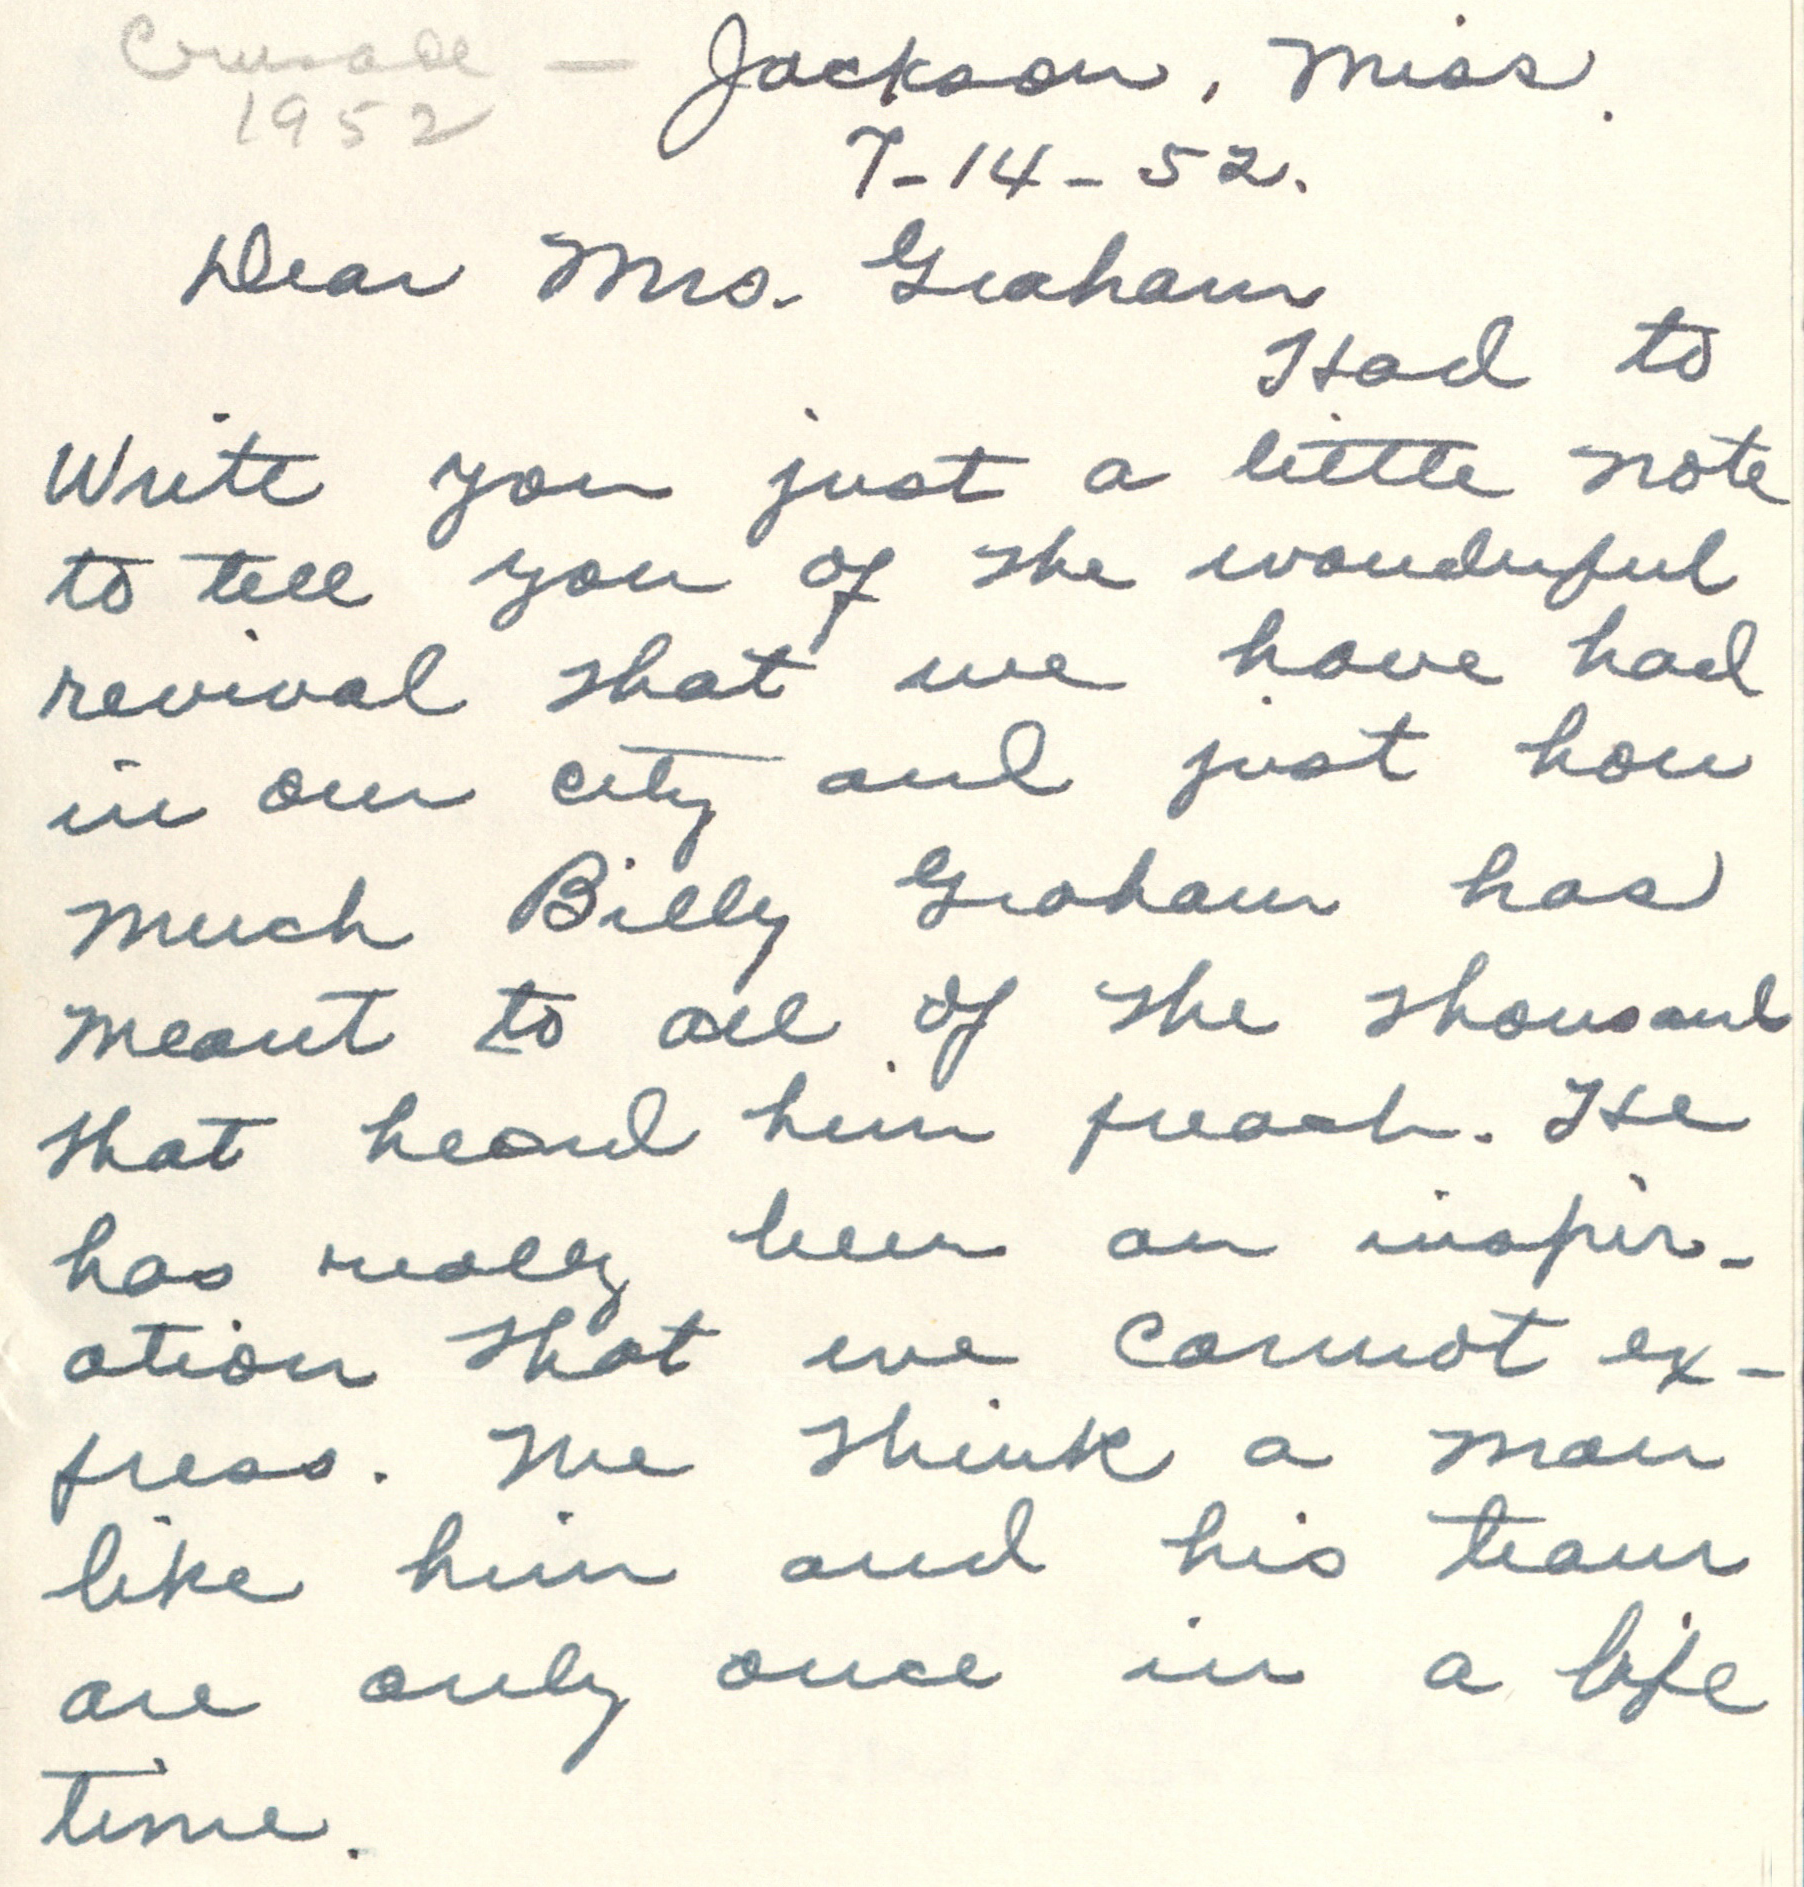 Crusade — Jackson, Miss.
1952
7-14-52.
Dear Mrs. Graham
Had to
Write you just a little note
to tell you of the wonderful
revival that we have had
in our city and just how
much Billy Graham has
meant to all of the thousand
that heard him preach. He
has really been an inspir-
ation that we cannot ex-
press. We think a man
like him and his team
are only once in a life
time.